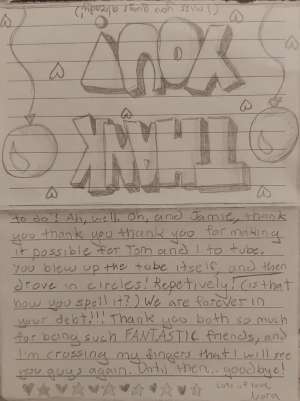 (I miss you guys already!)
THANK
YOU
to do! Ah, well. Oh, and Jamie, thank
you thank you thank you for making
it possible for Tom and I to tube.
You blew up the tube itself, and then
drove in circles! Repetively! (is that
how you spell it?) We are forever in
your debt!!! Thank you both so much
for being such FANTASTIC friends, and
I'm crossing my fingers that I will see
you guys again. Until then.. goodbye!
Lots of love,